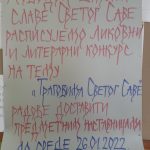 СЛАВЕ СВЕТОГ САВЕ
РАСПИСУЈЕМО ЛИКОВНИ
И ЛИТЕРАРНИ КОНКУРС
НА ТЕМУ
"ТРАГОВИМА СВЕТОГ САВЕ"
РАДОВЕ ДОСТАВИТИ
ПРЕДМЕТНИМ НАСТАВНИЦИМА
ДО СРЕДЕ 26.01.2022.